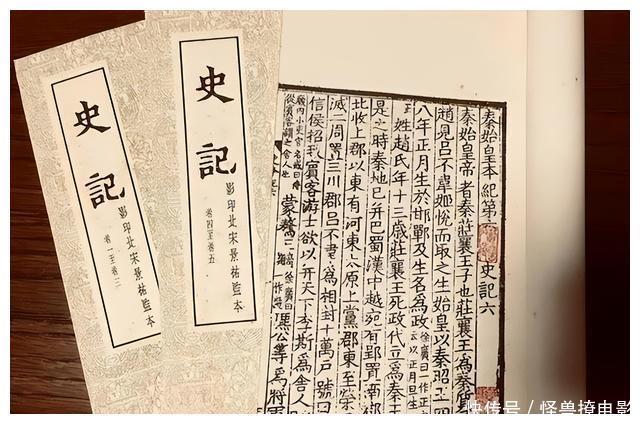 史記
影印北宋景祐監本
卷一至卷三
史記
影印北宋景祐監本
卷四至卷五
秦始皇本紀第
史記六
秦始皇帝者秦莊襄王子也莊襄王爲秦質
趙見呂不韋姬悅而取之生始皇以秦昭王
八年正月生於邯鄲及生名爲政徐廣曰一作正
姓趙氏年十三歲莊襄王死政代立爲秦王
是時秦地已并巴蜀漢中越宛有郢置南
北收上郡以東有河東太原上黨郡東至滎
滅二周置三川郡呂不韋爲相封十萬戶號曰
信侯招致賓客游士欲以并天下李斯爲舍人
從賓客謂之舍人也蒙驁王齮徐廣曰一作麃公等爲將軍
快传号 / 怪兽撩电影